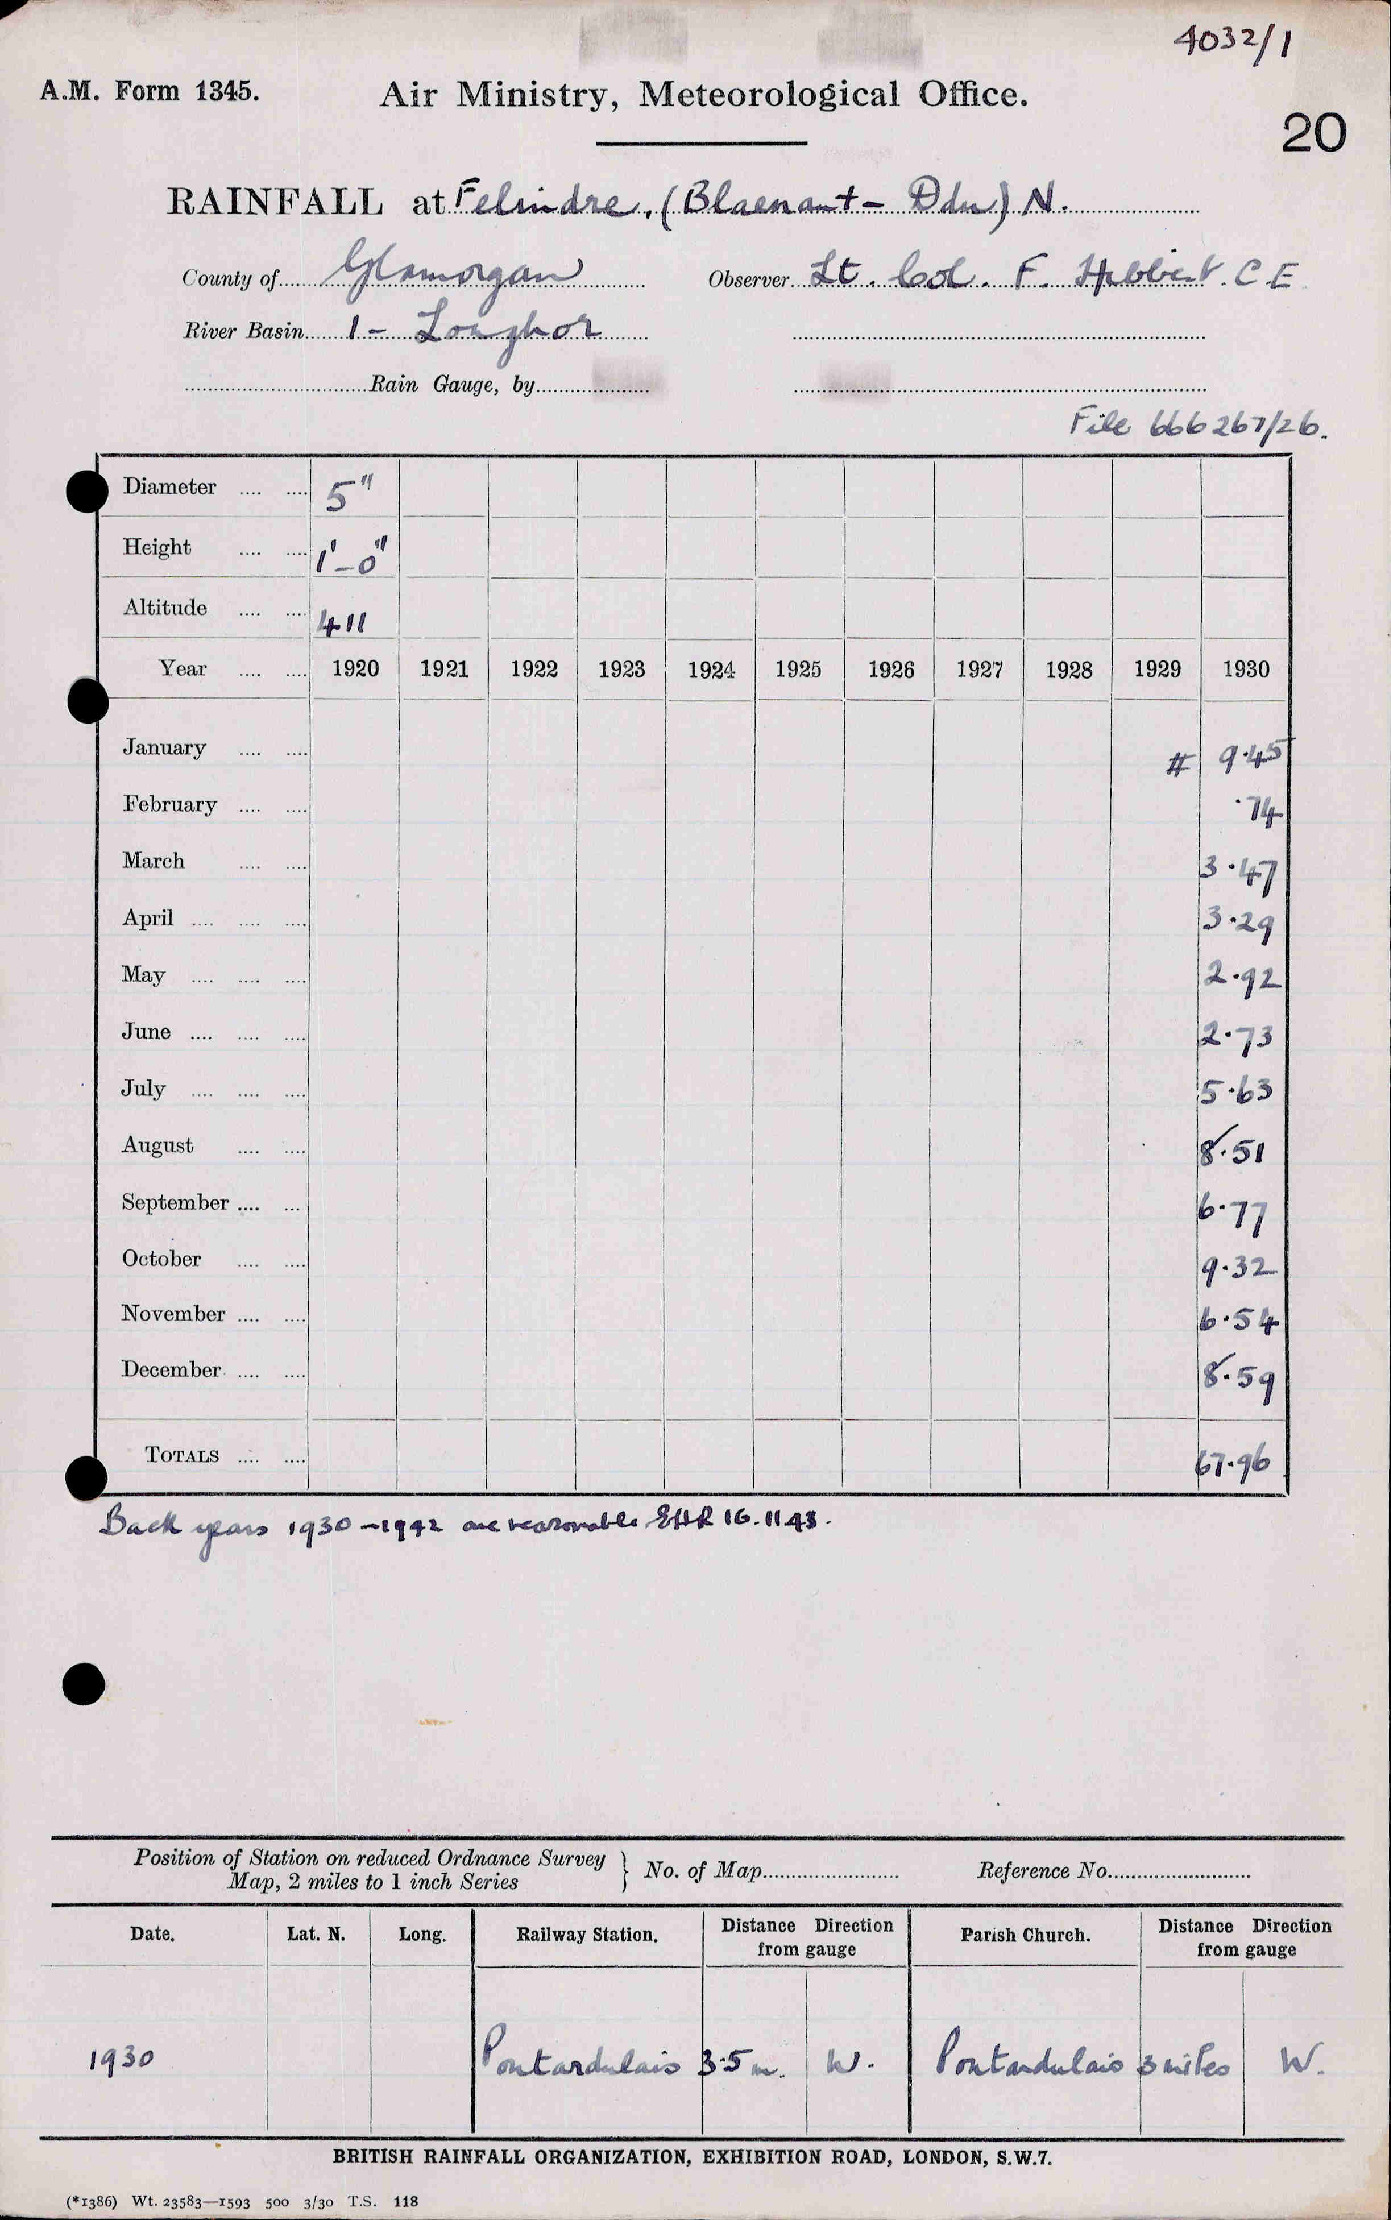 4032/1
A.M. Form 1345. Air Ministry, Meteorological Office.
20
RAINFALL at Felindre. (Blaenant - Ddu) N.
County of Glamorgan Observer Lt. Col. F. Hibbert. C.E
River Basin 1 - Loughor
Rain Gauge, by
File 666267/26.
Diameter .... .... 5"
Height .... .... 1'-0"
Altitude .... .... 411
Year .... .... 1920 1921 1922 1923 1924 1925 1926 1927 1928 1929 1930
January .... .... # 9.45
February .... .... .74
March .... .... 3.47
April .... .... .... 3.29
May .... .... .... 2.92
June .... .... .... 2.73
July .... .... .... 5.63
August .... .... 8.51
September .... .... 6.77
October .... .... 9.32
November .... .... 6.54
December .... .... 8.59
TOTALS .... .... 67.96
Back years 1930-1942 are reasonable EHR 16.11 43.
Position of Station on reduced Ordnance Survey
Map, 2 miles to 1 inch Series } No. of Map Reference No.
Date. Lat. N. Long. Railway Station. Distance Direction from gauge Parish Church. Distance Direction from gauge
1930 Pontardulais 3.5 m. W. Pontardulais 3 miles W.
BRITISH RAINFALL ORGANIZATION, EXHIBITION ROAD, LONDON, S.W.7.
(*1386) Wt. 23583—1593 500 3/30 T.S. 118